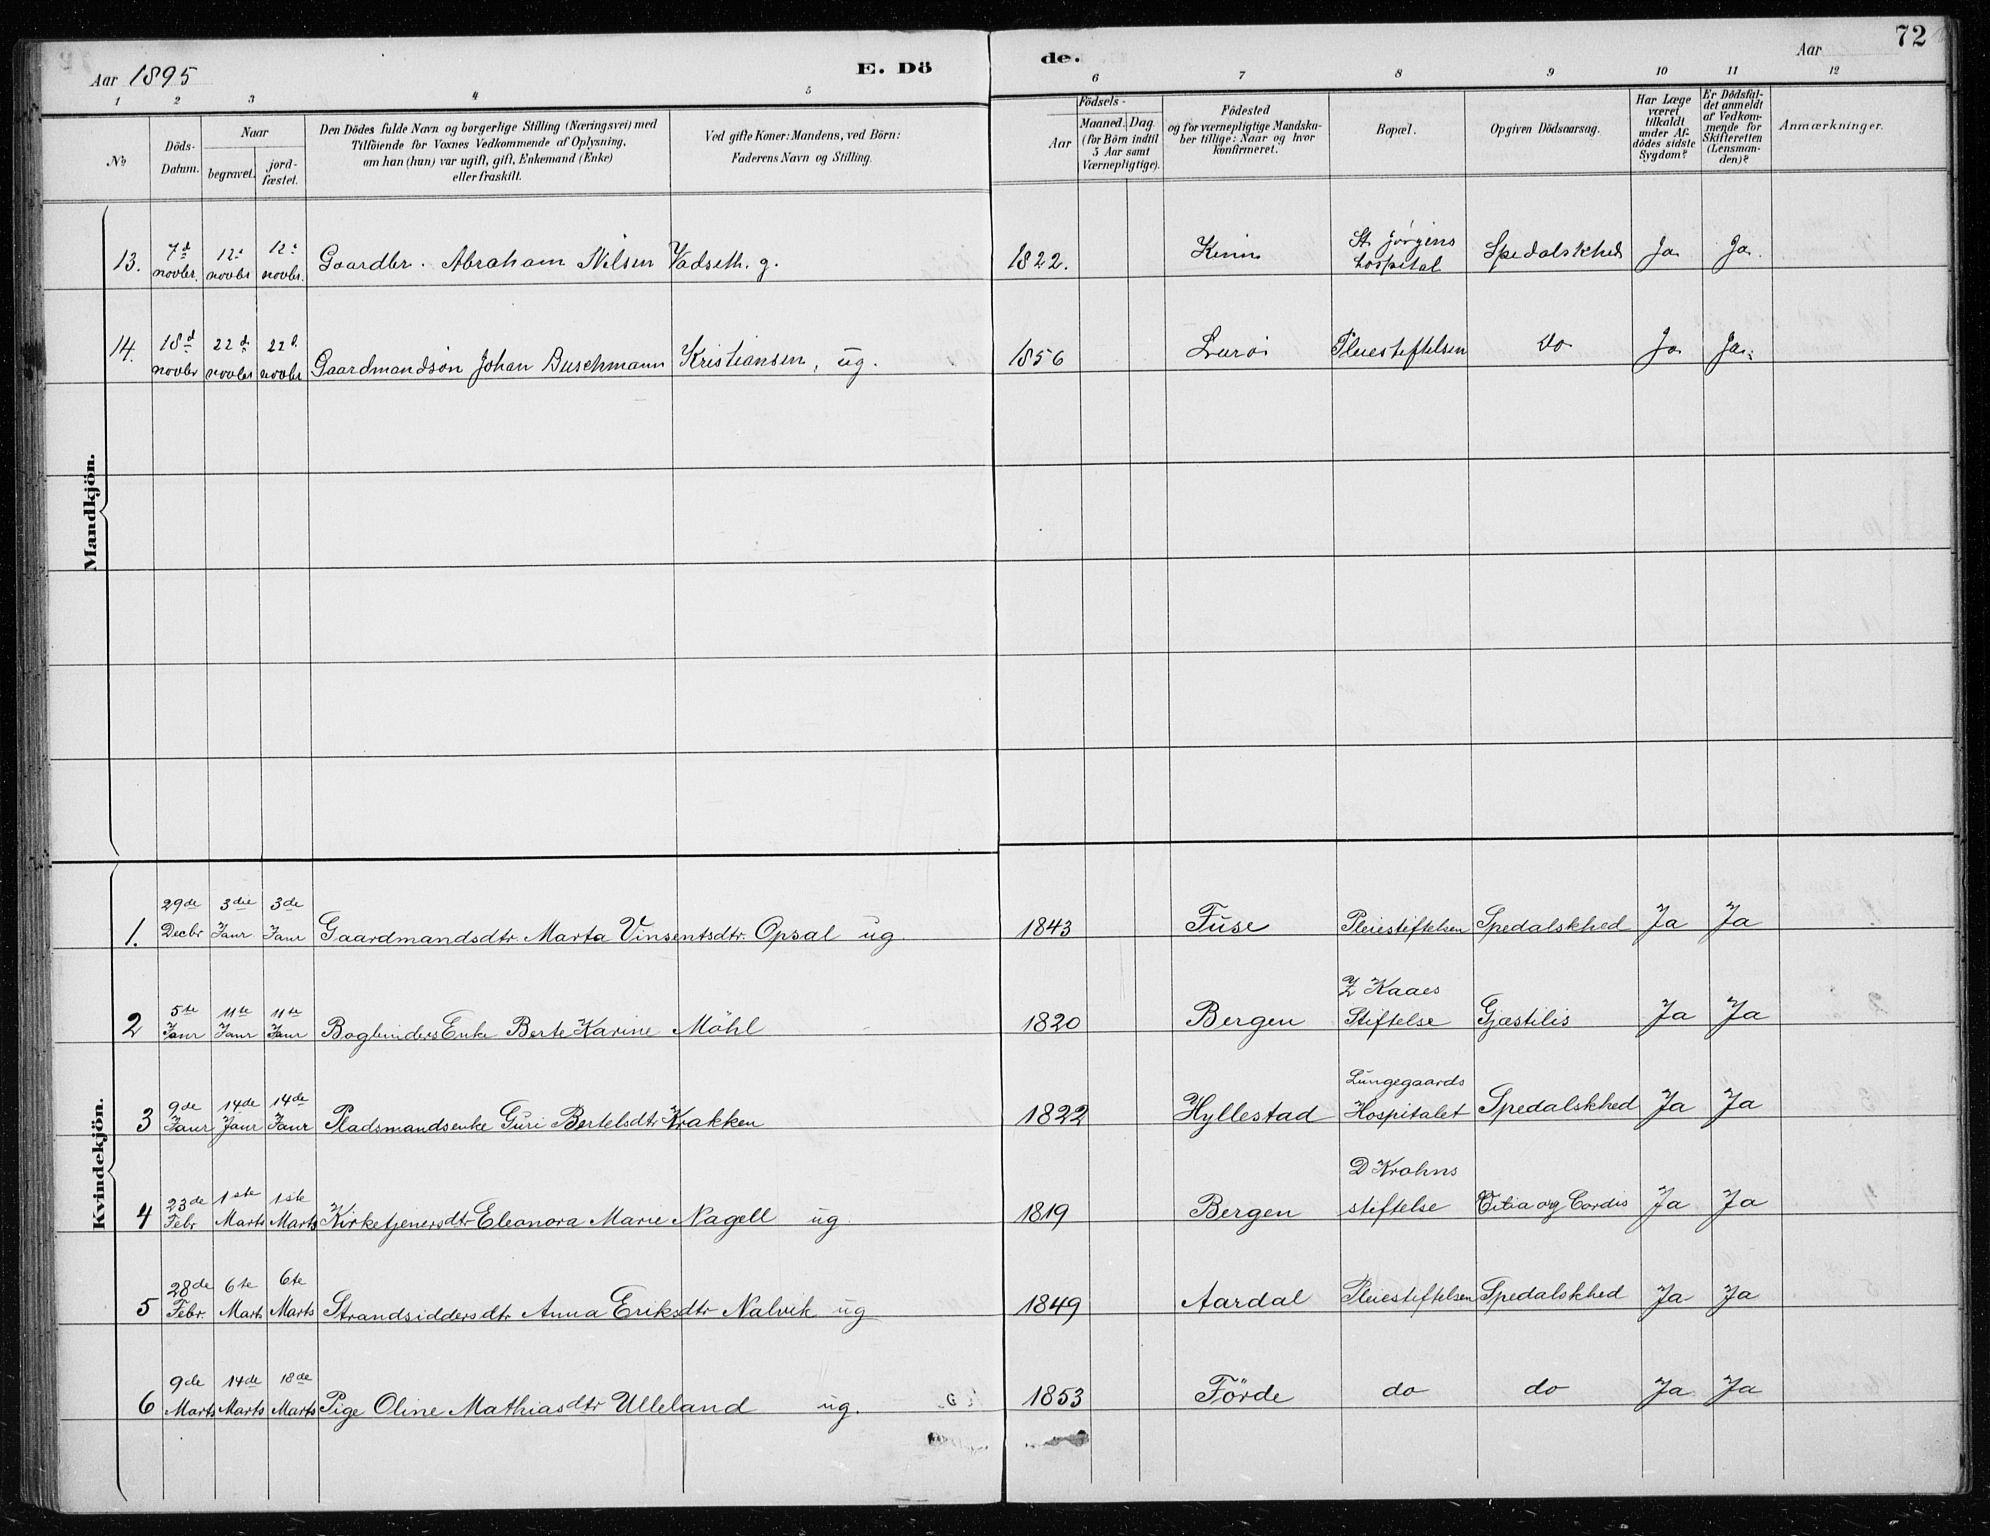 Aar 1895
E. Dö
de.
Aar
72
1 2 3 4 5 6 7 8 9 10 11 12
No
Döds-
Datum.
Naar
begravet.
jord-
fæstet.
Den Dödes fulde Navn og borgerlige Stilling (Næringsvei) med
Tilföiende for Voxnes Vedkommende af Oplysning,
om han (hun) var ugift, gift, Enkemand (Enke)
eller fraskilt.
Ved gifte Koner: Mandens, ved Börn:
Faderens Navn og Stilling.
Födsels-
Aar
Maaned. Dag
(for Börn indtil
5 Aar samt
Værnepligtige).
Födested
og for værnepligtige Mandska-
ber tillige: Naar og hvor
konfirmeret.
Bopæl.
Opgiven Dödsaarsag.
Har Læge
været
tilkaldt
under Af-
dödes sidste
Sygdom?
Er Dödsfal-
det anmeldt
af Vedkom-
mende for
Skifteretten
(Lensman-
den)?
Anmærkninger.
Mandkjön.
13. 7d novbr. 12. novbr 12. novbr. Gaardbr. Abraham Nilsen Vadseth. g. 1822. Kinn St. Jörgens hospital Spedalskhed Ja Ja.
14. 18d novbr 22d. novbr 22d. novbr Gaardmandsön Johan Buschmann Kristiansen, ug. 1856 Lurö Pleiestiftelsen Do Ja Ja.
Kvindekjön.
1. 29de Decbr 3die Janr. 3de Janr Gaardmandsdtr. Marta Vinsentsdtr. Opsal ug 1843 Fuse Pleiestiftelsen Spedalskhed Ja Ja
2 5te Janr 11te Janr 11te Janr Bogbinders Enke Berte Karine Möhl 1820 Bergen Z Kaaes Stiftelse Gjæstilis Ja Ja
3 9de Janr 14de Janr 14de Janr Pladsmandsenke Guri Bertelsdtr Krakken 1822 Hyllestad Lungegaards Hospitalet Spedalskhed Ja Ja
4 23de Febr 1ste Marts 1ste Marts Kirketjenersdtr Eleonora Marie Nagell ug. 1819 Bergen D Krohns stiftelse Vitia og Cordis Ja Ja
5 28de Febr. 6te Marts 6te Marts Strandsiddersdtr Anna Eriksdtr Nalvik ug 1849 Aardal Pleiestiftelsen Spedalskhed Ja Ja
6 9de Marts 14de Marts 18de Marts Pige Oline Mathiasdtr Ulleland ug. 1853 Förde do do Ja Ja